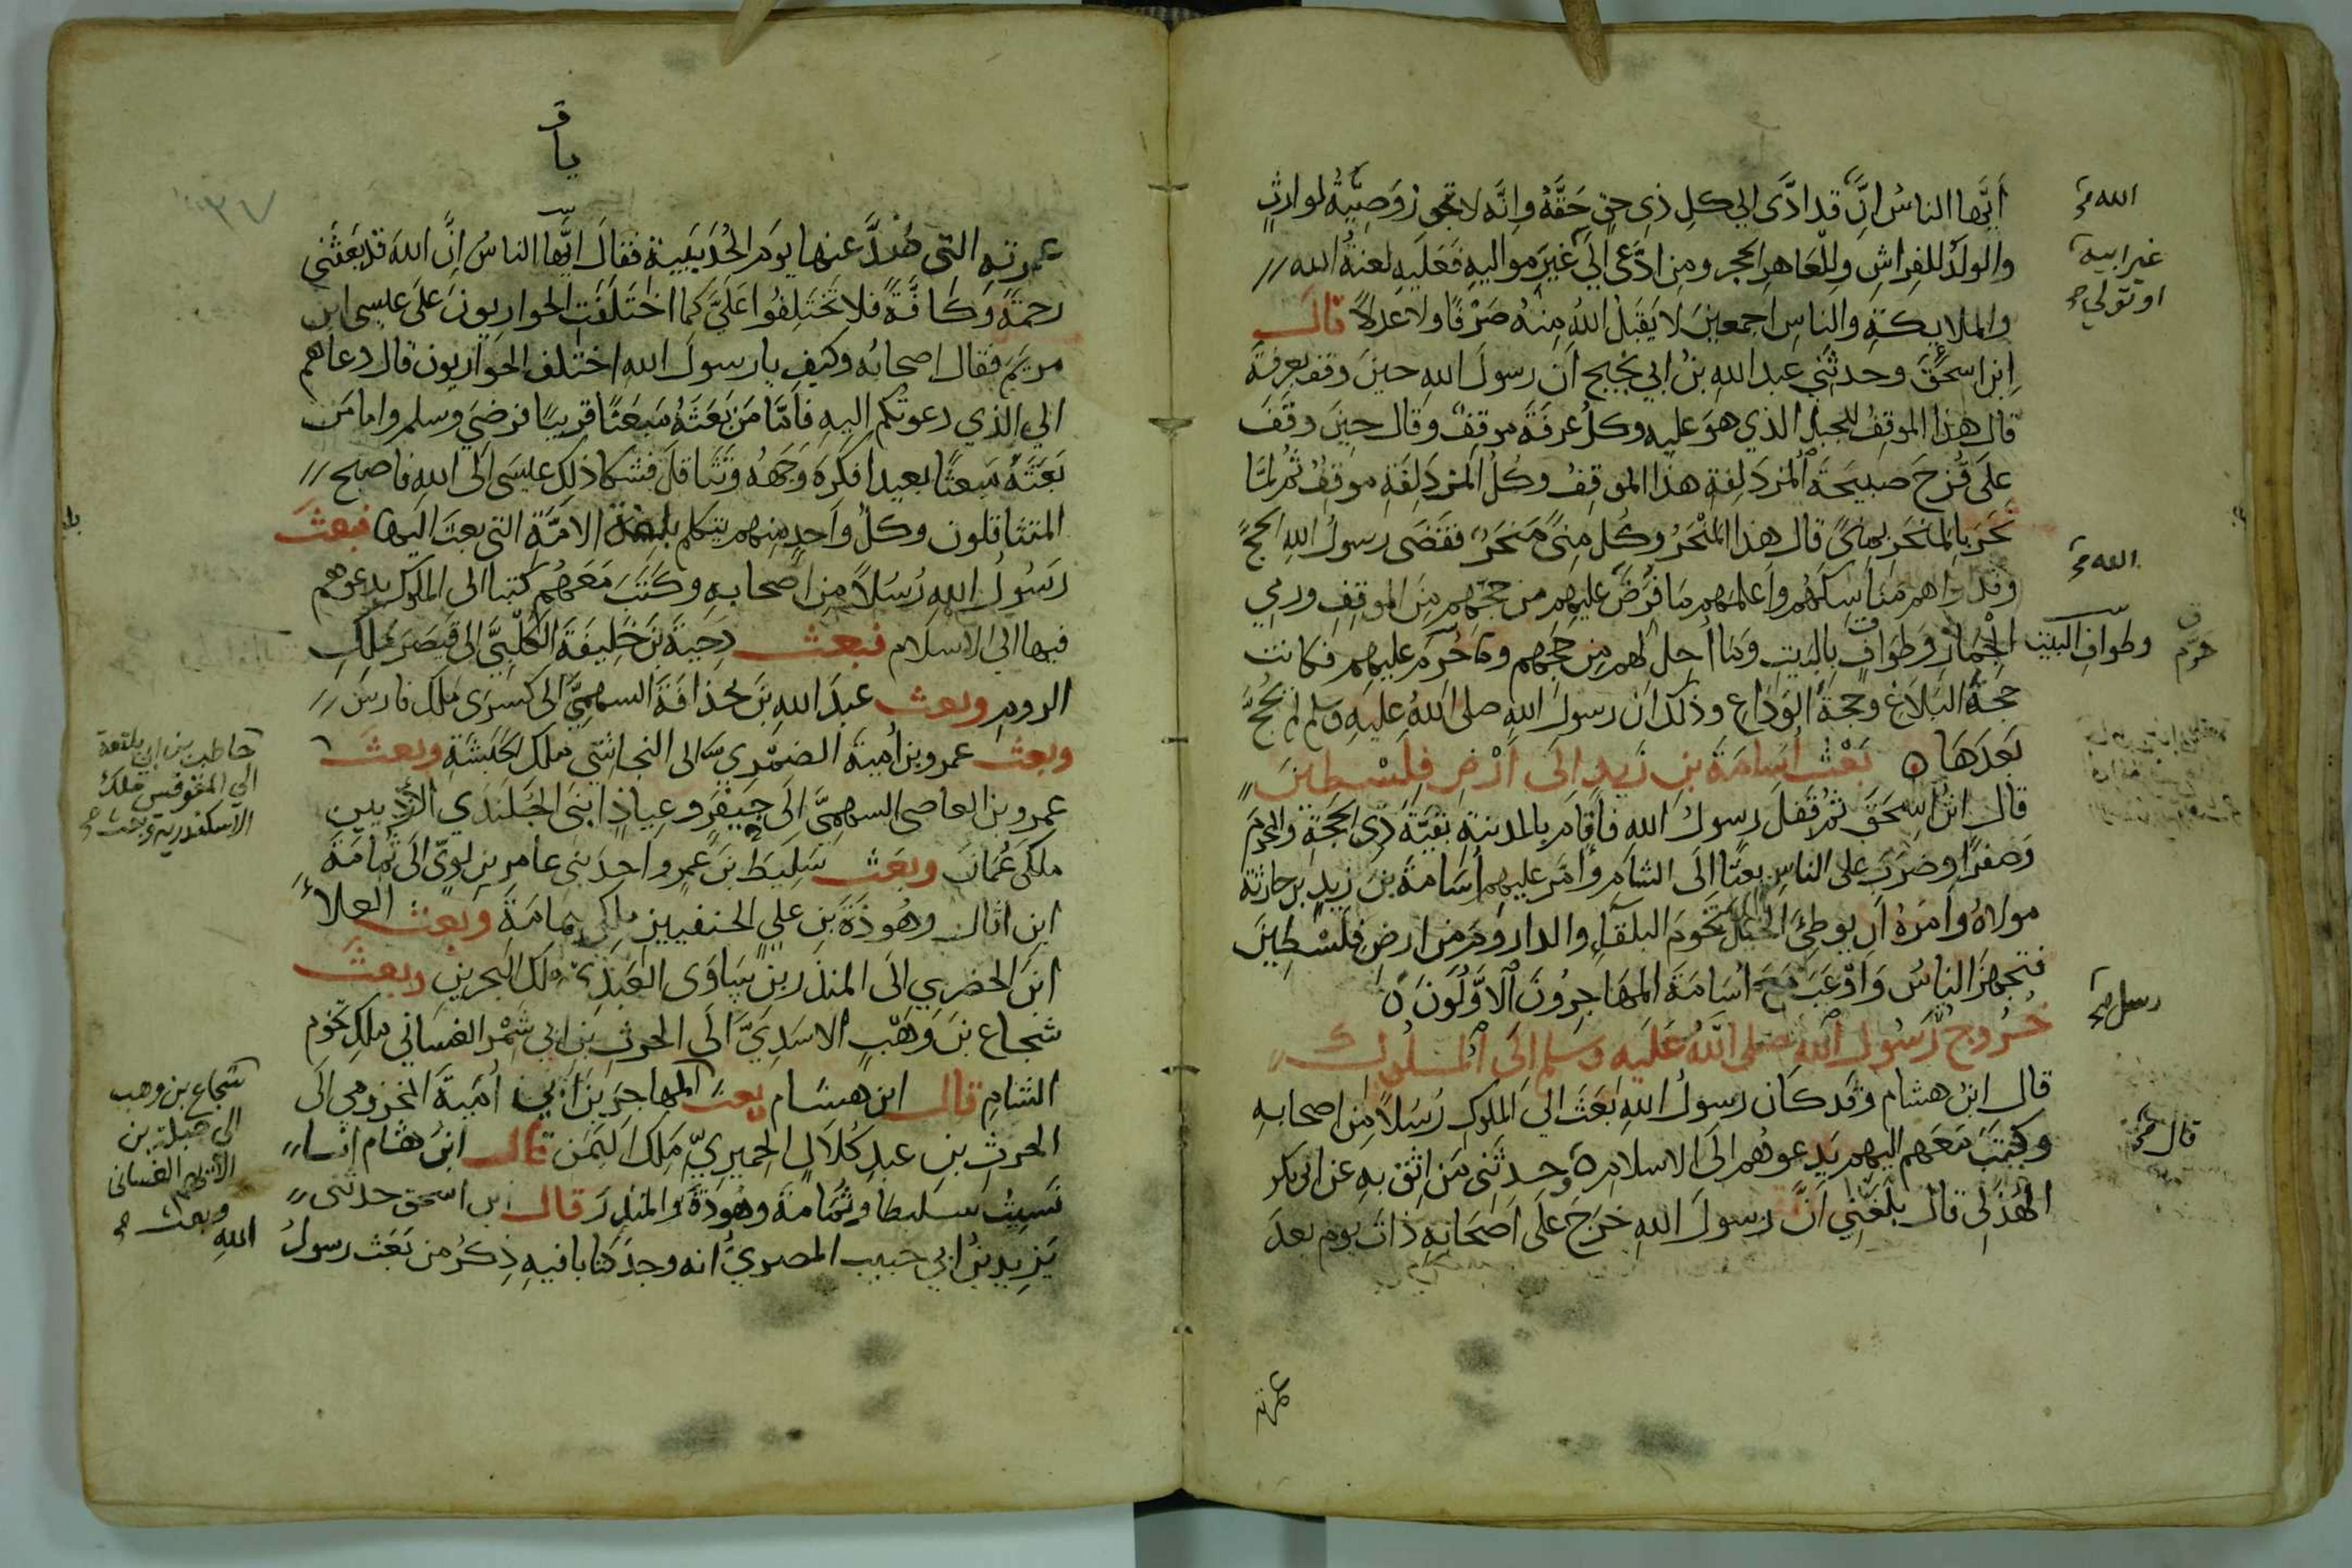 أيها الناس إن قد ادى الى كل ذي حق حقه وانه لا تجوز وصية لوارث
والولد للفراش وللعاهر الحجر ومن ادعى الى غير مواليه فعليه لعنة الله
والملايكة والناس اجمعين لا يقبل الله منه صرفا ولا عدلا قال
ابن اسحق وحدثني عبد الله بن ابي نجيح ان رسول الله حين وقف بعرفة
قال هذا الموقف للجبل الذي هو عليه وكل عرفة موقف وقال حين وقف
على قزح صبيحة المزدلفة هذا الموقف وكل المزدلفة موقف ثم لما
نحر بالمنحر بمنى قال هذا المنحر وكل منى منحر فقضى رسول الله الحج
وقد اراهم مناسكهم واعلمهم ما فرض عليهم من حجهم من الموقف ورمي
الجمار وطواف بالبيت وما احل لهم من حجهم وما حرم عليهم فكانت
حجة البلاغ وحجة الوداع وذلك ان رسول الله صلى الله عليه وسلم لم يحج
بعدها ه بعث اسامة بن زيد الى ارض فلسطين
قال ابن اسحق ثم قفل رسول الله فاقام بالمدينة بقية ذي الحجة والمحرم
وصفرا وضرب على الناس بعثا الى الشام وامر عليهم اسامة بن زيد بن حارثة
مولاه وامره ان يوطئ الخيل تخوم البلقاء والداروم من ارض فلسطين
فتجهز الناس واوعب مع اسامة المهاجرون الاولون ه
خروج رسول الله صلى الله عليه وسلم الى الملوك
قال ابن هشام وقد كان رسول الله بعث الى الملوك رسلا من اصحابه
وكتب معهم اليهم يدعوهم الى الاسلام ه وحدثني من اثق به عن ابي بكر
الهذلي قال بلغني ان رسول الله خرج على اصحابه ذات يوم بعد
عمرته
الله
غير ابيه
او تولى
الله
وطواف البيت
حرم
رسل
قال
عمرته التي صد عنها يوم الحديبية فقال ايها الناس ان الله قد بعثني
رحمة وكافة فلا تختلفوا علي كما اختلفت الحواريون على عيسى ابن
مريم فقال اصحابه وكيف يا رسول الله اختلف الحواريون قال دعاهم
الى الذي دعوتكم اليه فاما من بعثه مبعثا قريبا فرضي وسلم واما من
بعثه مبعثا بعيدا فكره وجهه وتثاقل فشكا ذلك عيسى الى الله فاصبح
المتثاقلون وكل واحد منهم يتكلم بلغة الامة التي بعث اليها فبعث
رسول الله رسلا من اصحابه وكتب معهم كتبا الى الملوك يدعوهم
فيها الى الاسلام فبعث دحية بن خليفة الكلبي الى قيصر ملك
الروم وبعث عبد الله بن حذافة السهمي الى كسرى ملك فارس
وبعث عمرو بن أمية الضمري الى النجاشي ملك الحبشة وبعث
عمرو بن العاصي السهمي الى جيفر وعياذ ابني الجلندي الازديين
ملكي عمان وبعث سليط بن عمرو احد بني عامر بن لوي الى ثمامة
ابن اثال وهوذة بن علي الحنفيين ملكي يمامة وبعث العلاء
ابن الحضرمي الى المنذر بن ساوى العبدي ملك البحرين وبعث
شجاع بن وهب الاسدي الى الحرث بن ابي شمر الغساني ملك تخوم
الشام قال ابن هشام بعث المهاجر بن ابي امية المخزومي الى
الحرث بن عبد كلال الحميري ملك اليمن قال ابن هشام انا
نسيت سليطا وثمامة وهوذة والمنذر قال ابن اسحق حدثني
يزيد بن ابي حبيب المصري انه وجد كتابا فيه ذكر من بعث رسول
حاطب بن ابي بلتعة
الى المقوقس ملك
الاسكندرية وبعث
شجاع بن وهب
الى جبلة بن
الايهم الغساني
وبعث
الله